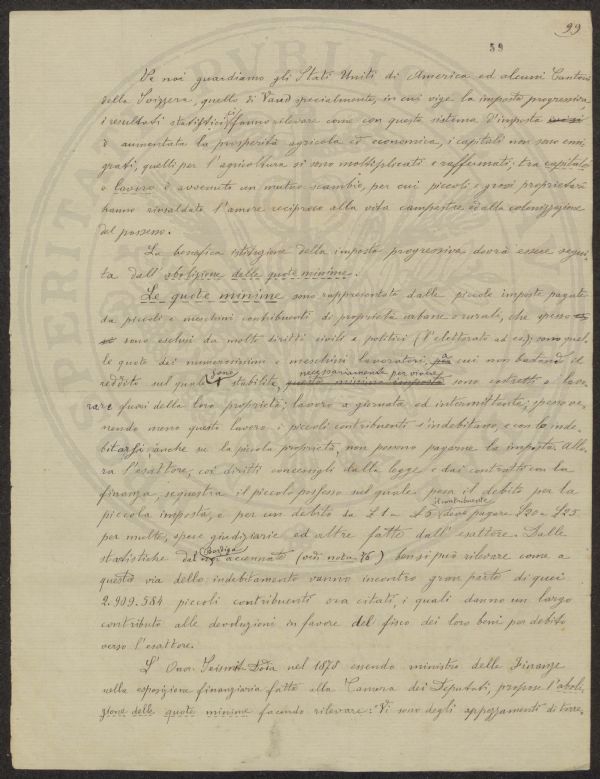 99
59
Se noi guardiamo gli Stati Uniti di America ed alcuni Cantoni
della Svizzera, quello di Vaud specialmente, in cui vige la imposta progressiva
i resultati statistici ci fanno rilevare come con questo sistema d'imposta
è aumentata la prosperità agricola ed economica, i capitali non sono emi-
grati, quelli per l'agricoltura si sono moltiplicati e raffermati; tra capitale
e lavoro è avvenuto un mutuo scambio, per cui piccoli e grossi proprietari
hanno rinsaldato l'amore reciproco alla vita campestre ed alla colonizzazione
del possesso.
La benefica istituzione della imposta progressiva dovrà essere segui-
ta dall'abolizione delle quote minime.
Le quote minime sono rappresentate dalle piccole imposte pagate
da piccoli e meschini contribuenti di proprietà urbane o rurali, che spesso
sono esclusi da molti diritti civili e politici (l'elettorato ad es); sono quel-
le quote dei numerosissimi e meschini lavoratori, a cui non bastando il
reddito sul quale sono stabilite, necessariamente per vivere questa minima imposta sono costretti a lavo-
rare fuori della loro proprietà; lavoro a giornata ed intermittente; spesso ve-
nendo meno questo lavoro i piccoli contribuenti s'indebitano, e con lo inde-
bitarsi, anche se la piccola proprietà, non possono pagarne la imposta. Allo-
ra l'esattore, coi diritti concessigli dalla legge e dai contratti con la
finanza, sequestra il piccolo possesso sul quale pesa il debito per la
piccola imposta, e per un debito da £ 1 a £ 5 il contribuente deve pagare £ 20 a £ 25
per multe, spese giudiziarie ed altre fatte dall'esattore. Dalle
statistiche del Bodio accennate (vedi nota 76) bensì può rilevare come a
questa via dello indebitamento vanno incontro gran parte di quei
2.909.584 piccoli contribuenti ora citati, i quali danno un largo
contributo alle devoluzioni in favore del fisco dei loro beni per debito
verso l'esattore.
L'Onor. Seismit-Doda nel 1878 essendo ministro delle Finanze
nella esposizione finanziaria fatta alla Camera dei Deputati, propose l'aboli-
zione delle quote minime facendo rilevare: Vi sono degli appezzamenti di terre-